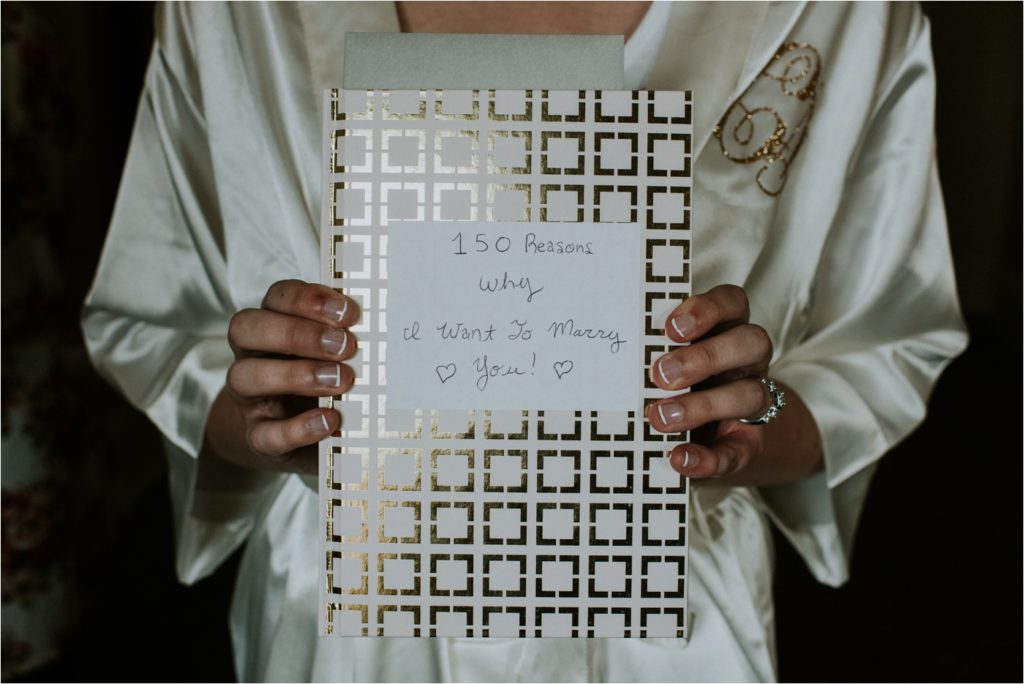 150 Reasons
why
I Want To Marry
♡ You! ♡